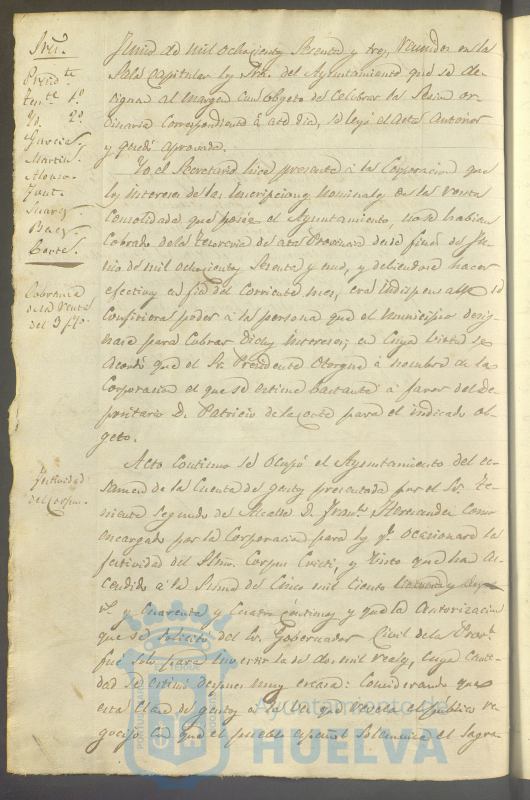 Sres.
Presidte
Tente 1º
Yd. 2º
Garcia.
Martin.
Alonso.
Suarez.
Baez.
Cortes.
Junio de mil ochocientos sesenta y tres, reunidos en la
Sala Capitular los Sres. del Ayuntamiento que se de-
signan al margen con objeto de celebrar la sesion or-
dinaria correspondiente á este dia, se leyó el acta anterior
y quedó aprovada.
Yo el Secretario hice presente á la Corporacion que
los intereses de las inscripciones nominales de la renta
consolidada que posée el Ayuntamiento, no se habian
cobrado de la Tesoreria de esta Provincia desde fines de Ju-
nio de mil ochocientos sesenta y uno, y debiendose hacer
Cobranza
de la renta
del 3 pº/o.
efectivos en fin del corriente mes, era indispensable se
confiriera poder á la persona que el municipio desig-
nase para cobrar dichos intereses; en cuya vista se
acordó que el Sr. Presidente otorgue á nombre de la
Corporacion el que se estime bastante á favor del De-
positario D. Patricio de la Corte para el indicado ob-
geto.
Festividad
del Corpus.
Acto continuo se ocupó el Ayuntamiento del ec-
samen de la cuenta de gastos presentada por el Sr. Te-
niente segundo de Alcalde D. Franco. Hernandez como
encargado por la Corporacion para los q. ocasionare la
festividad del Stmo. Corpus Cristi, y visto que ha as-
cendido á la suma de cinco mil ciento
rs. y cuarenta y cuatro céntimos y que la autorizacion
que se solicitó del Sr. Gobernador Civil de la Prova.
fué solo para invertir la de dos mil reales, cuya canti-
dad se estimó despues muy escasa: Considerando que
esta clase de gastos á la vez que revela el público re-
gocijo con que el pueblo español solemniza el sagra-
Ayuntamiento de
HUELVA